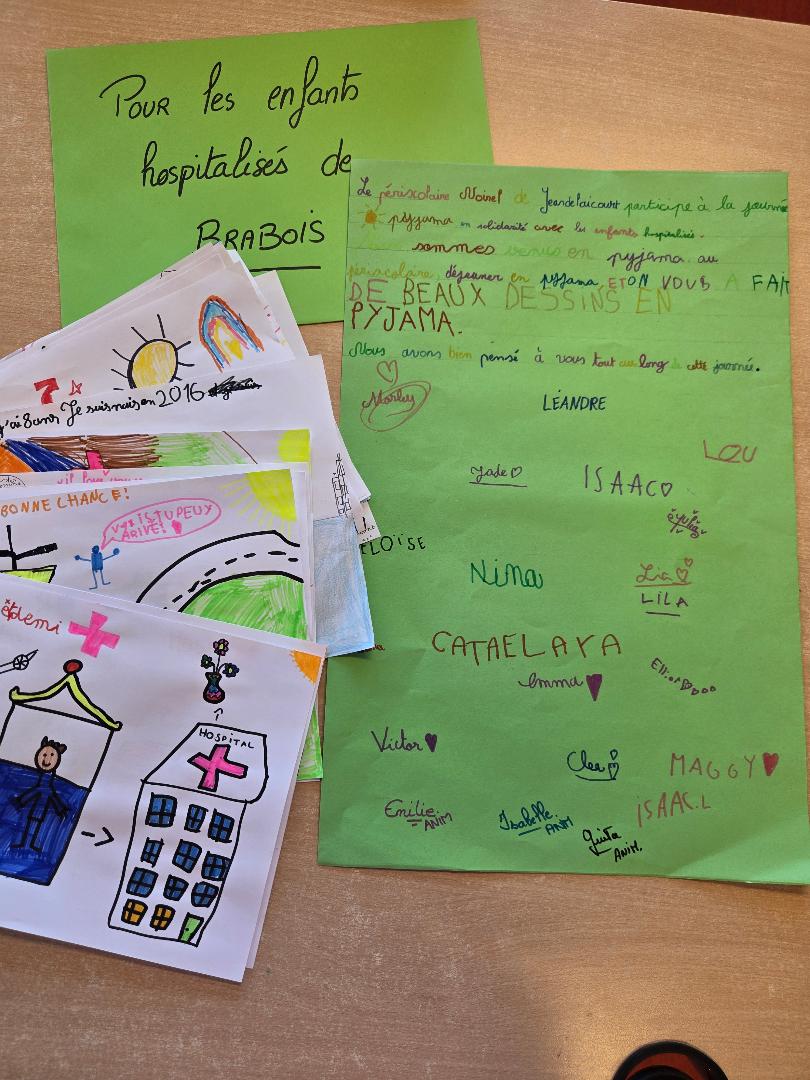 Pour les enfants
hospitalisés de
BRABOIS
Le périscolaire Noirel de Jeandelaicourt participe à la journée
pyjama en solidarité avec les enfants hospitalisés.
sommes venus en pyjama au
périscolaire, déjeuner en pyjama, ET ON VOUS A FAIT
DE BEAUX DESSINS EN
PYJAMA.
Nous avons bien pensé à vous tout au long de cette journée.
Marley
LÉANDRE
LOU
Jade
ISAAC
NiNa
Lia
LILA
CATAELAYA
Emma
Victor
Clea
MAGGY
Emilie ANIM
Isabelle ANIM
ISAAC.L
ANIM.
7
j'ai 8 ans Je suis nais en 2016
BONNE CHANCE!
TU PEUX
ARIVÉ!
ELOÏSE
et demi
HOSPITAL